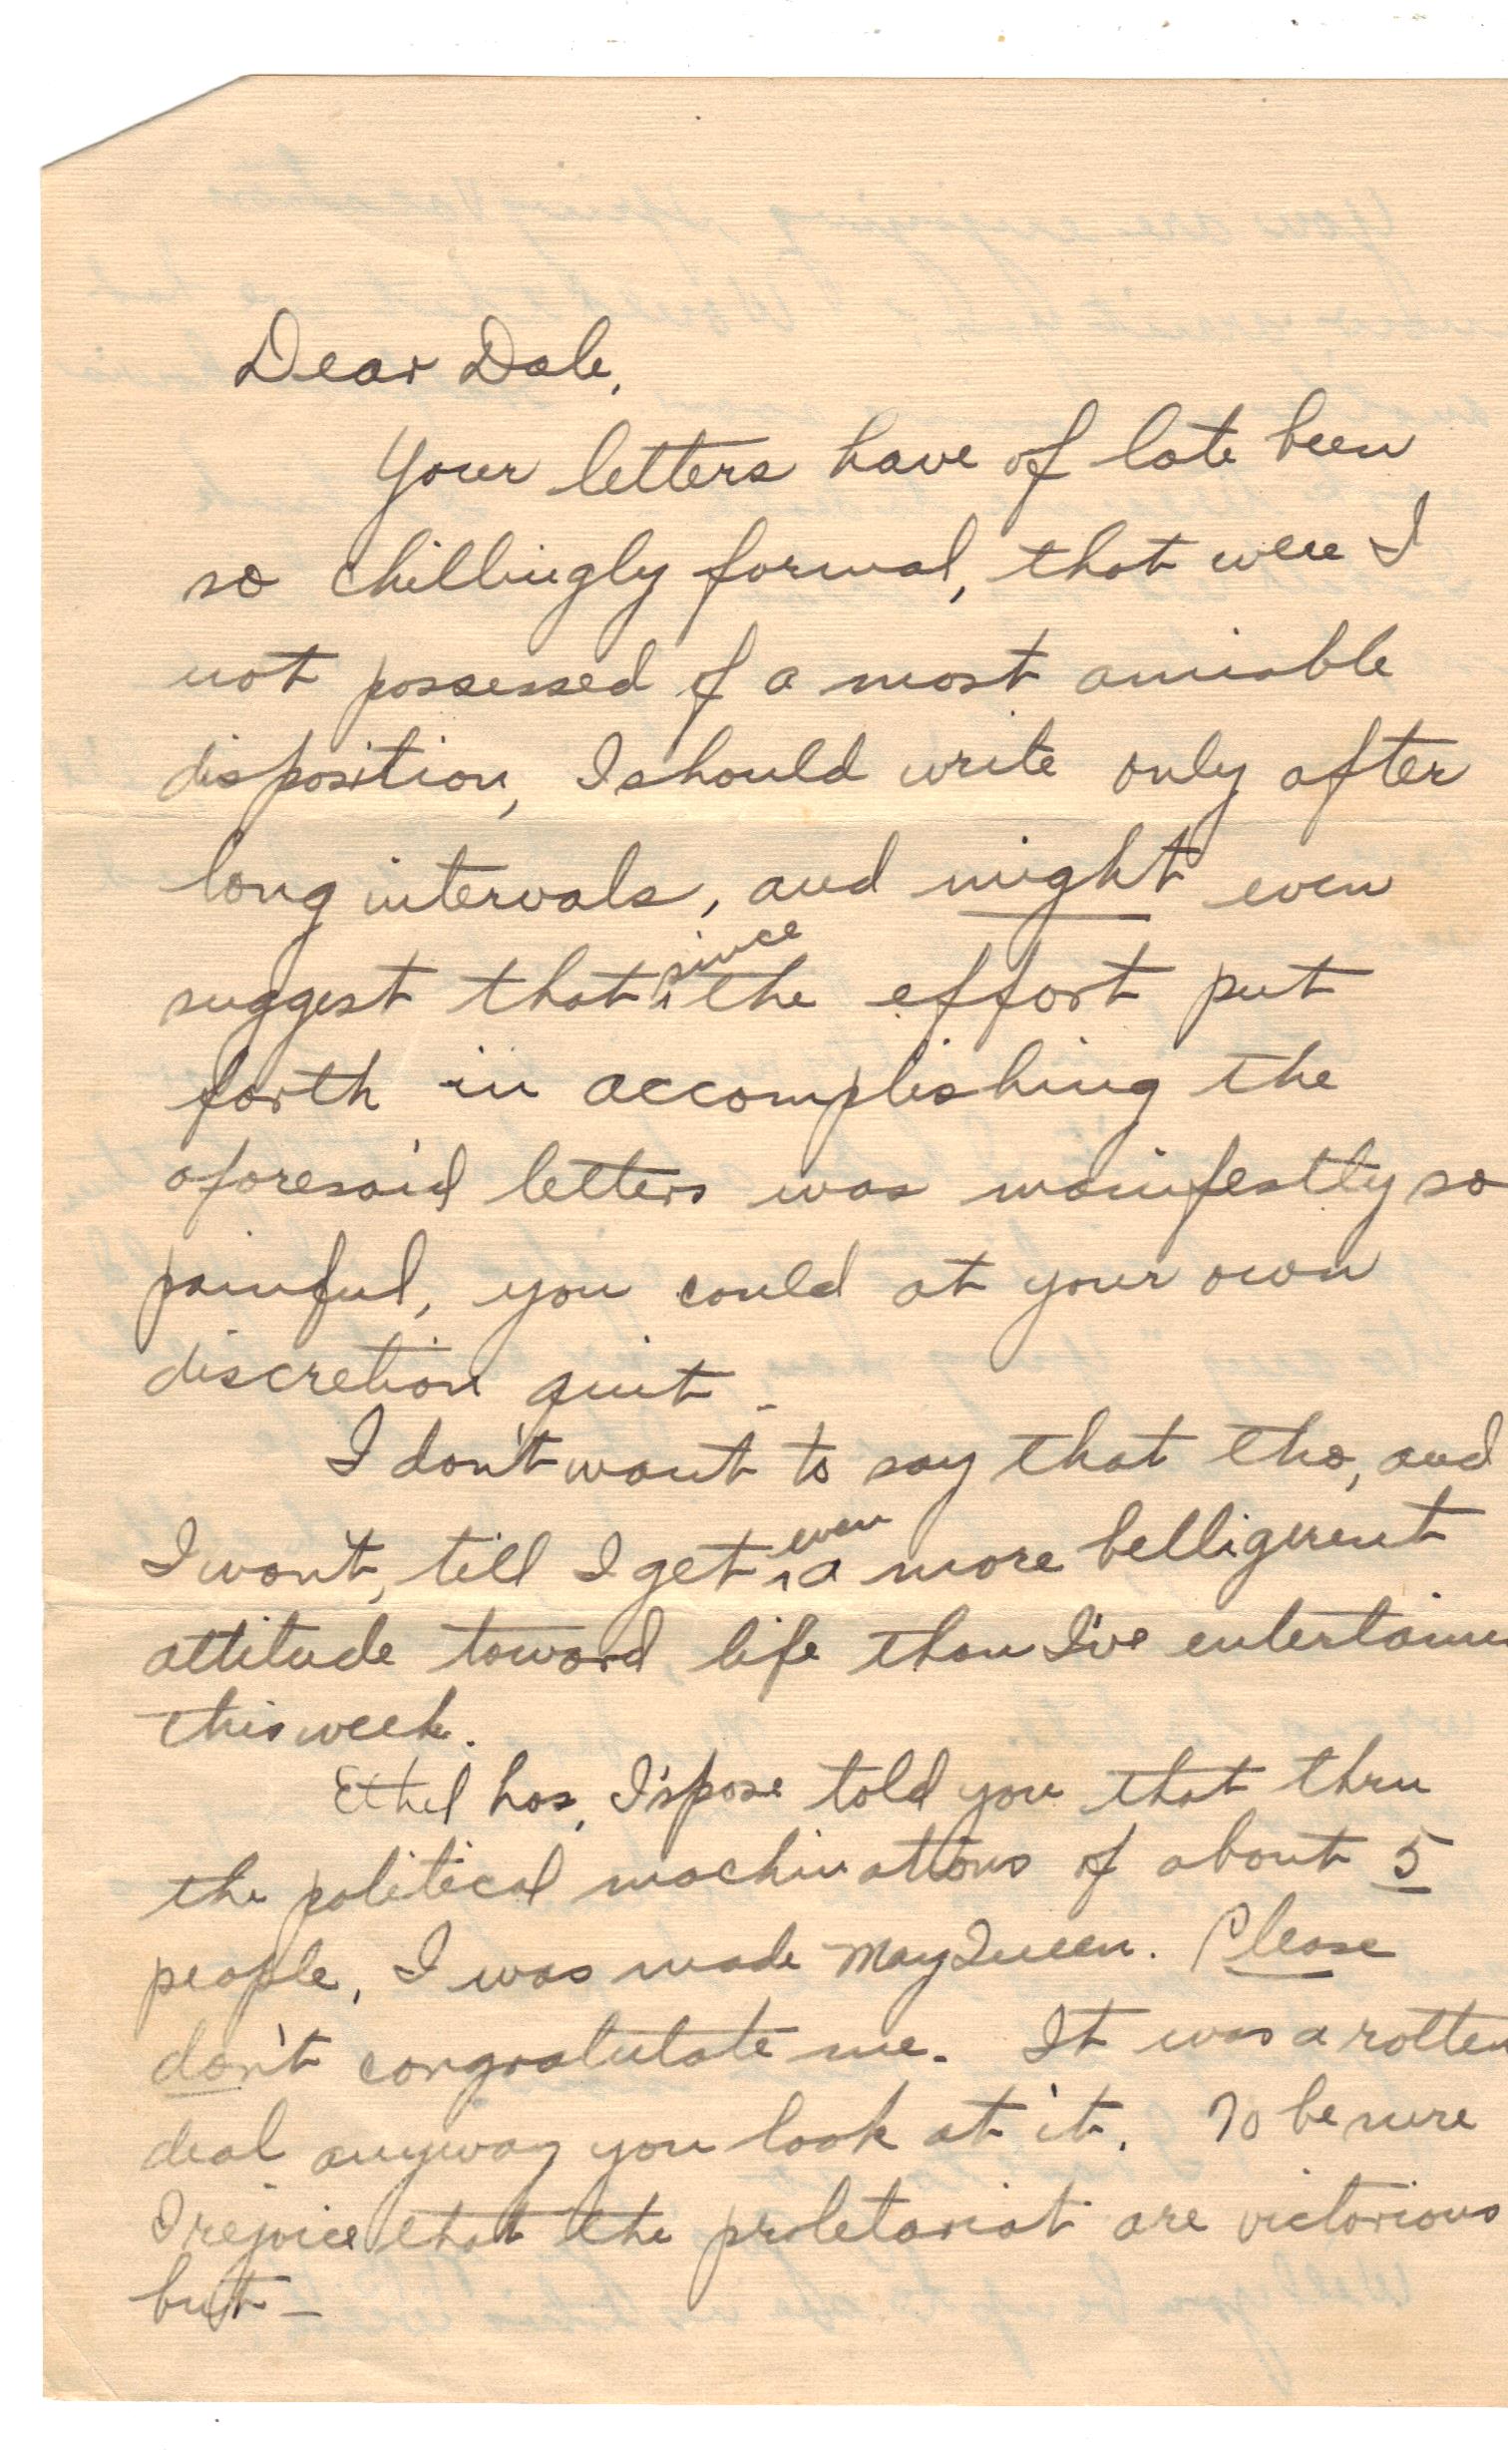 Dear Dale,
Your letters have of late been
so chillingly formal, that were I
not possessed of a most amiable
disposition, I should write only after
long intervals, and might even
suggest that since the effort put
forth in accomplishing the
aforesaid letters was manifestly so
painful, you could at your own
discretion quit.
I don't want to say that tho, and
I won't, till I get even a more belligerent
attitude toward life than I've entertaine
this week.
Ethel has, I 'spose told you that thru
the political machinations of about 5
people, I was made May Queen. Please
don't congratulate me. It was a rotten
deal anyway you look at it. To be sure
I rejoice that the proletariat are victorious
but –